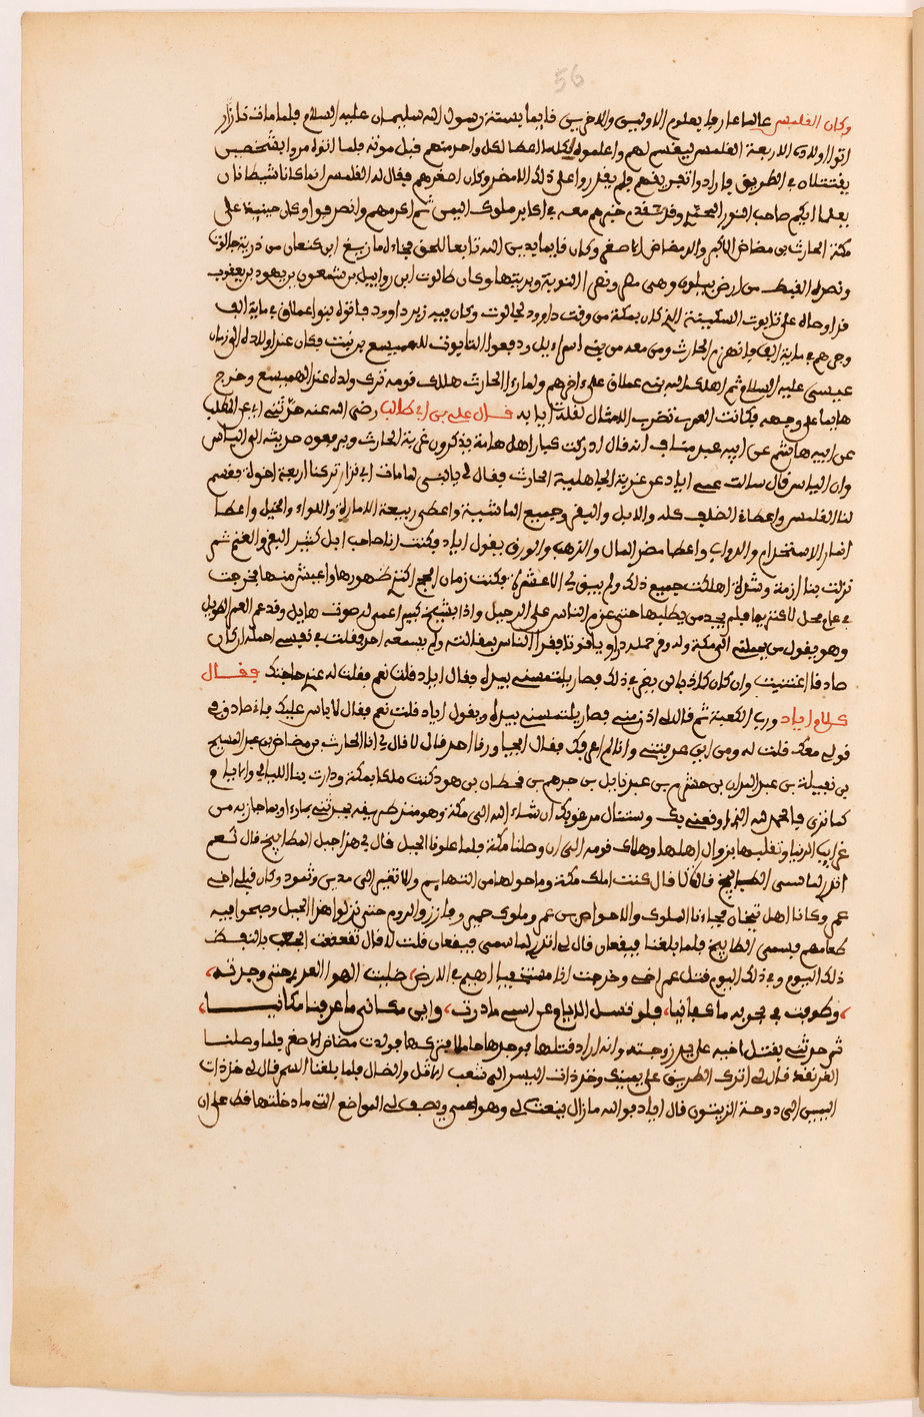 56
وكان القلمس عالما عارفا بعلوم الاولين والاخرين قايما بسنة رسول الله سليمان عليه السلام فلما مات نزار
اتوا اولاده الاربعة القلمس ليقسم لهم واعلموه بكلما اعطا لكل واحد منهم قبل موته فلما اتوه مروا بشخصين
يقتتلان في الطريق فارادوا تفريقهم فلم يقدروا على ذلك الامضر وكان اصغرهم فقال له القلمس انما كانا شيطانان
بعلما ايكم صاحب النور وقد تقدم خبرهم معه في اكابر ملوك اليمن ثم اكرمهم وانصرفوا وكل حينيذ على
مكة الحارث بن مضاض الاكبر والد مضاض الاصغر وكان قايما بدين الله تابعا للحق فجاءه ابن كنعان من ذرية جالوت
ونصره القبط من ارض وهى مصر ونصر النوبة وبربتها وكان طالوت ابن روابيل بن شمعون بن يهود بن يعقوب
قد اوصاه على تابوت السكينة الذي كان بمكة من وقت داوود لجالوت وكان فيه زبر داوود فاتوه بنوا عملاق في ماية الف
وجرهم في ماية الف فانهزم الحارث ومن معه من بني اسراءيل ودفعوا التابوت للهميسع بن نبت فكان عند اولاده الى زمان
عيسى عليه السلام ثم اهلك الله بني عملاق على ءاخرهم ولما رءا الحارث هلاك قومه ترك ولده عند الهميسع وخرج
هايما على وجهه فكانت العرب تضرب الامثال لغلة اياد به قال علي بن ابي طالب رضي الله عنه حدثني ابي عبد المطلب
عن ابيه هاشم عن ابيه عبد مناف انه قال ادركت كبار اهل مكة يذكرون غربة الحارث ويرفعون حديثه الى الياس
وان الياس قال سالت عمي اياد عن غربة الجاهلية الحارث فقال لي يا بني لما مات ابي نزار تركنا اربعة اخوة فقسم
لنا القلمس واعطاه الخلف كله والابل والبقر وجميع الماشية واعطى ربيعة الامارة واللواء والخيل واعطا
انمار الاستخدام والدواب واعطا مضر المال والذهب والورق يقول اياد فكنت انا صاحب ابل كثير البقر والغنم ثم
نزلت بنا ازمة وشدة اهلكت جميع ذلك ولم يبق لي الا عشرة فكنت زمان الحج اكترى ظهورها واعيش منها فخرجت
في عام محل لاكتريها فلم يجد من يطلبها حتى عزم الناس على الرحيل واذا بشيخ كبير اعمى له صوت هايل
وهو يقول من يحملني الى مكة وله وقر جمله درا وياقوتا فقرا الناس بمقالته ولم يسمعه احد فقلت في نفسي احمله ان كان
صادقا اغتنيت وان كان كاذبا لن يضر في ذلك فصار يلتمسني بيده فقال اياد قلت نعم فقلت له عندي حاجتك فقال
كلام اياد ورب الكعبة ثم قال له اذن مني فصار يلتمسني بيده ويقول اياد قلت نعم فقال لا باس عليك فانه صادق في
قولي معك قلت له ومن اين عرفتني وانا لم اعرفك فقال قال لي انا الحارث بن مضاض بن عبد المسيح
بن نفيلة بن عبد المدان بن حشرم بن عبد يا ليل بن جرهم بن قحطان بن هود كنت ملكا بمكة ودارت بنا الليالي والايام
كما ترى فالحمد لله الذي اوقعني بك وستنال مرغوبك ان شاء الله الى مكة وهو منذ طريقه يحدثني بما رءا وبما جاز به من
غرايب الدنيا وتقلبها بزوال اهلها وهلاك قومه الى ان وصلنا مكة فلما علونا الجبل قال لي هذا جبل المطابخ قال نعم
اتدري لما سمي المطابخ قال لا قال كنت املك مكة وما حولها من التهايم والا تغير الى مدين وثمود وكان قبلي اخي
عمر وكانا اهل تيجان فجاءنا الملوك والاحواص من عمر وملوك حمير وفارز والروم حتى نزلوا هذا الجبل وطبخوا فيه
طعامهم فسمي المطابخ فلما بلغنا قيقعان قال لي اتدري لما سمي قيقعان قلت لا قال تقعقعت
ذلك اليوم وفي ذلك اليوم قتل عمر اخي وخرجت انا هايم في الارض، طلبت الهوا العذري حتى وجدته،
، وطوفت في نجوبه ما كفانيا، فلو تسل الايام عن اسمي ما درت، واين مكاني ما عرفنا مكانيا،
ثم حدثني بقتل اخيه على يد زوجته وانه اراد قتلها فوجدها حاملا فتركها فولدت مضاض الاصغر فلما وصلنا
قال لي اترك الطريق على يمينك وخذ ذات اليسار الى شعب الاثل والضال فلما بلغنا السمر قال لي خذ ذات
اليمين الى دوحة الزيتون قال اياد فوالله ما زال ينعت لي وهو اعمى ويصف لي المواضع التي ما دخلتها قط على ان